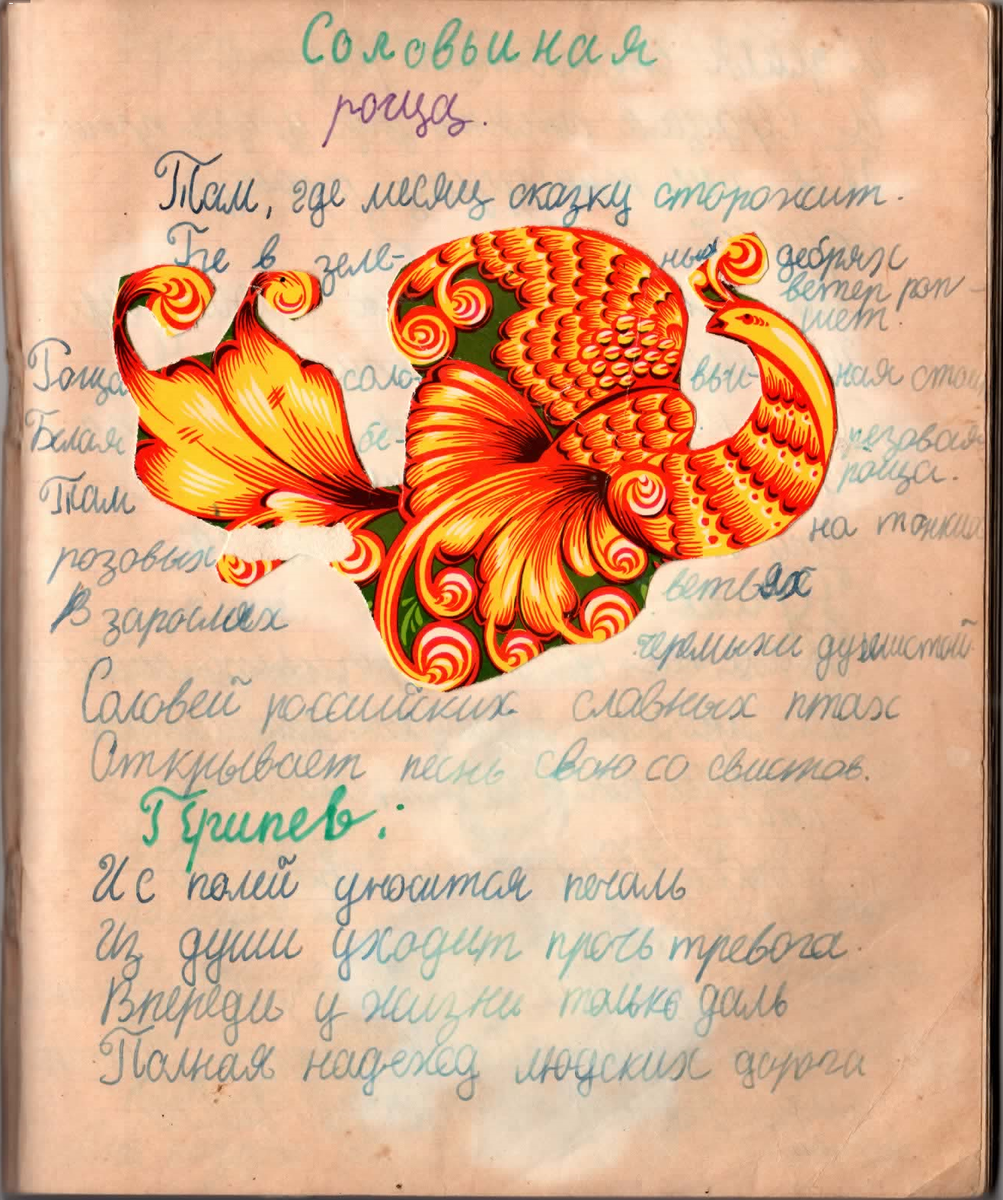 Соловьиная
роща.
Там, где месяц сказку сторожит.
Где в зеле- ных дебрях
ветер роп-
щет.
Роща соло- вьи- ная стоит
Белая бе- резовая
роща.
Там на тонких
розовых ветвях
В зарослях черемухи душистой
Соловей российских славных птах
Открывает песнь свою со свистов.
Припев:
И с полей уносится печаль
Из души уходит прочь тревога.
Впереди у жизни только даль
Полная надежд людских дорога